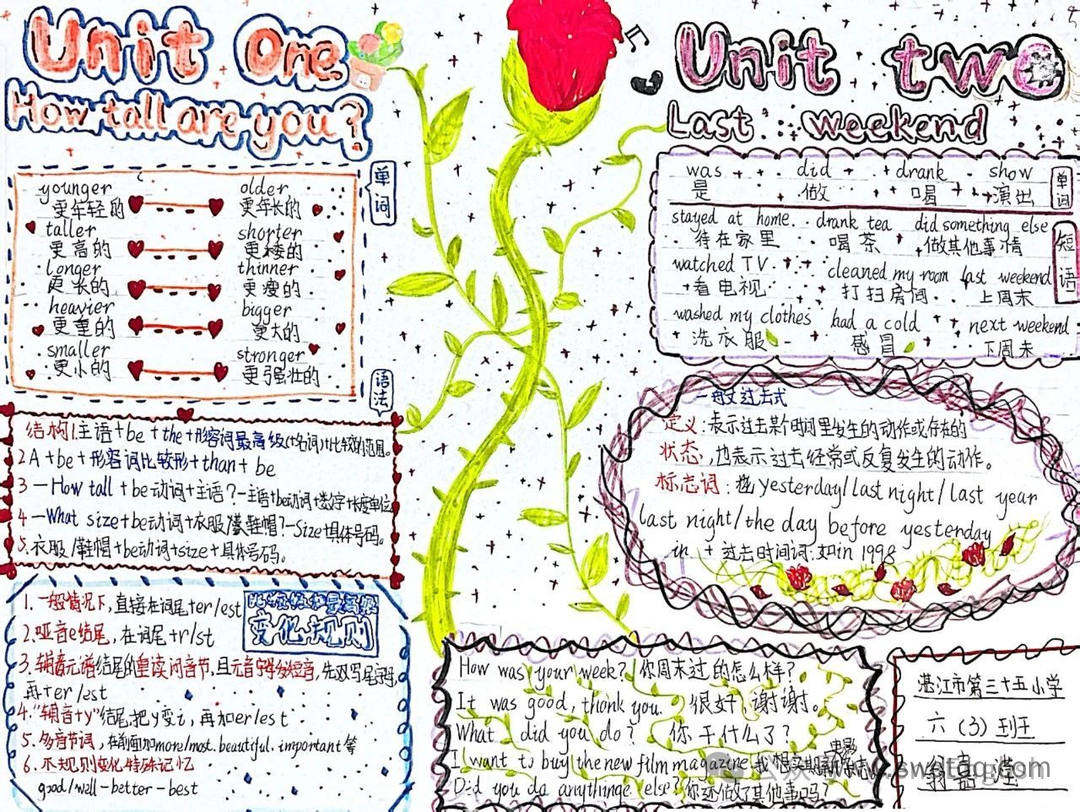 Unit One
How tall are you?
单词
younger older
更年轻的 更年长的
taller shorter
更高的 更矮的
longer thinner
更长的 更瘦的
heavier bigger
更重的 更大的
smaller stronger
更小的 更强壮的
语法
结构1.主语+be+the+形容词最高级
2 A+be+形容词比较形+than+be
3 一How tall+be动词+主语?一主语+be动词+数字+长度单位
4 一What size+be动词+衣服/鞋帽?一Size+具体号码。
5.衣服/鞋帽+be动词+size+具体号码。
变化规则
1.一般情况下,直接在词尾+er/est
2.哑音e结尾,在词尾+r/st
3.辅音元谐结尾的重读词音节,且元音字母发短音,先双写尾字母,
再+er/est
4."辅音+y"结尾把y变i,再加er/est
5.多音节词,在前面加more/most.beautiful.important等
6.不规则变化特殊记忆
good/well-better-best
Unit two
Last weekend
单词
was did drank show
是 做 喝 演出
短语
stayed at home. drank tea did something else
待在家里 喝茶 做其他事情
watched TV cleaned my room last weekend
看电视 打扫房间 上周末
washed my clothes had a cold next weekend
洗衣服 感冒 下周末
一般过去式
定义:表示过去某个时间里发生的动作或存在的
状态,也表示过去经常或反复发生的动作。
标志词: yesterday/last night/last year
last night/the day before yesterday
in + 过去时间词.如in 1998
How was your week?你周末过的怎么样?
It was good, thank you. 很好,谢谢。
What did you do? 你干什么了?
I want to buy the new film magazine
Did you do anythinge else?你还做了其他事吗?
湛江市第三十五小学
六(3)班